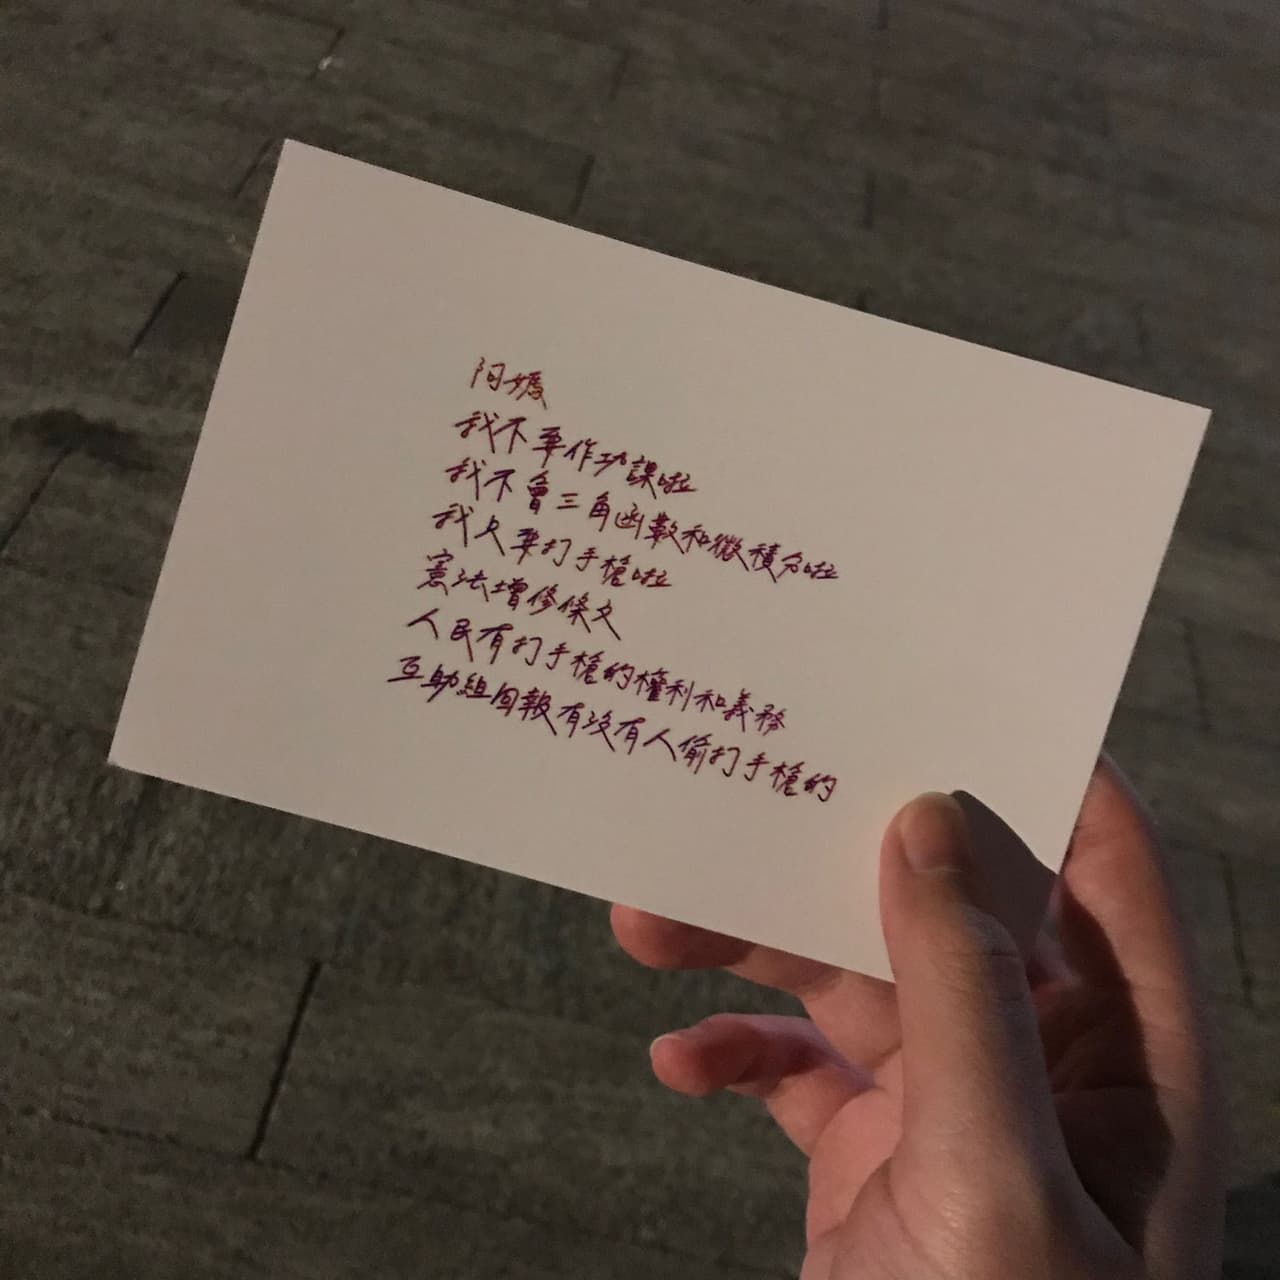 阿嬤
我不要作功課啦
我不會三角函數和微積分啦
我只要打手槍啦
憲法增修條文
人民有打手槍的權利和義務
互助組回報有沒有人偷打手槍的